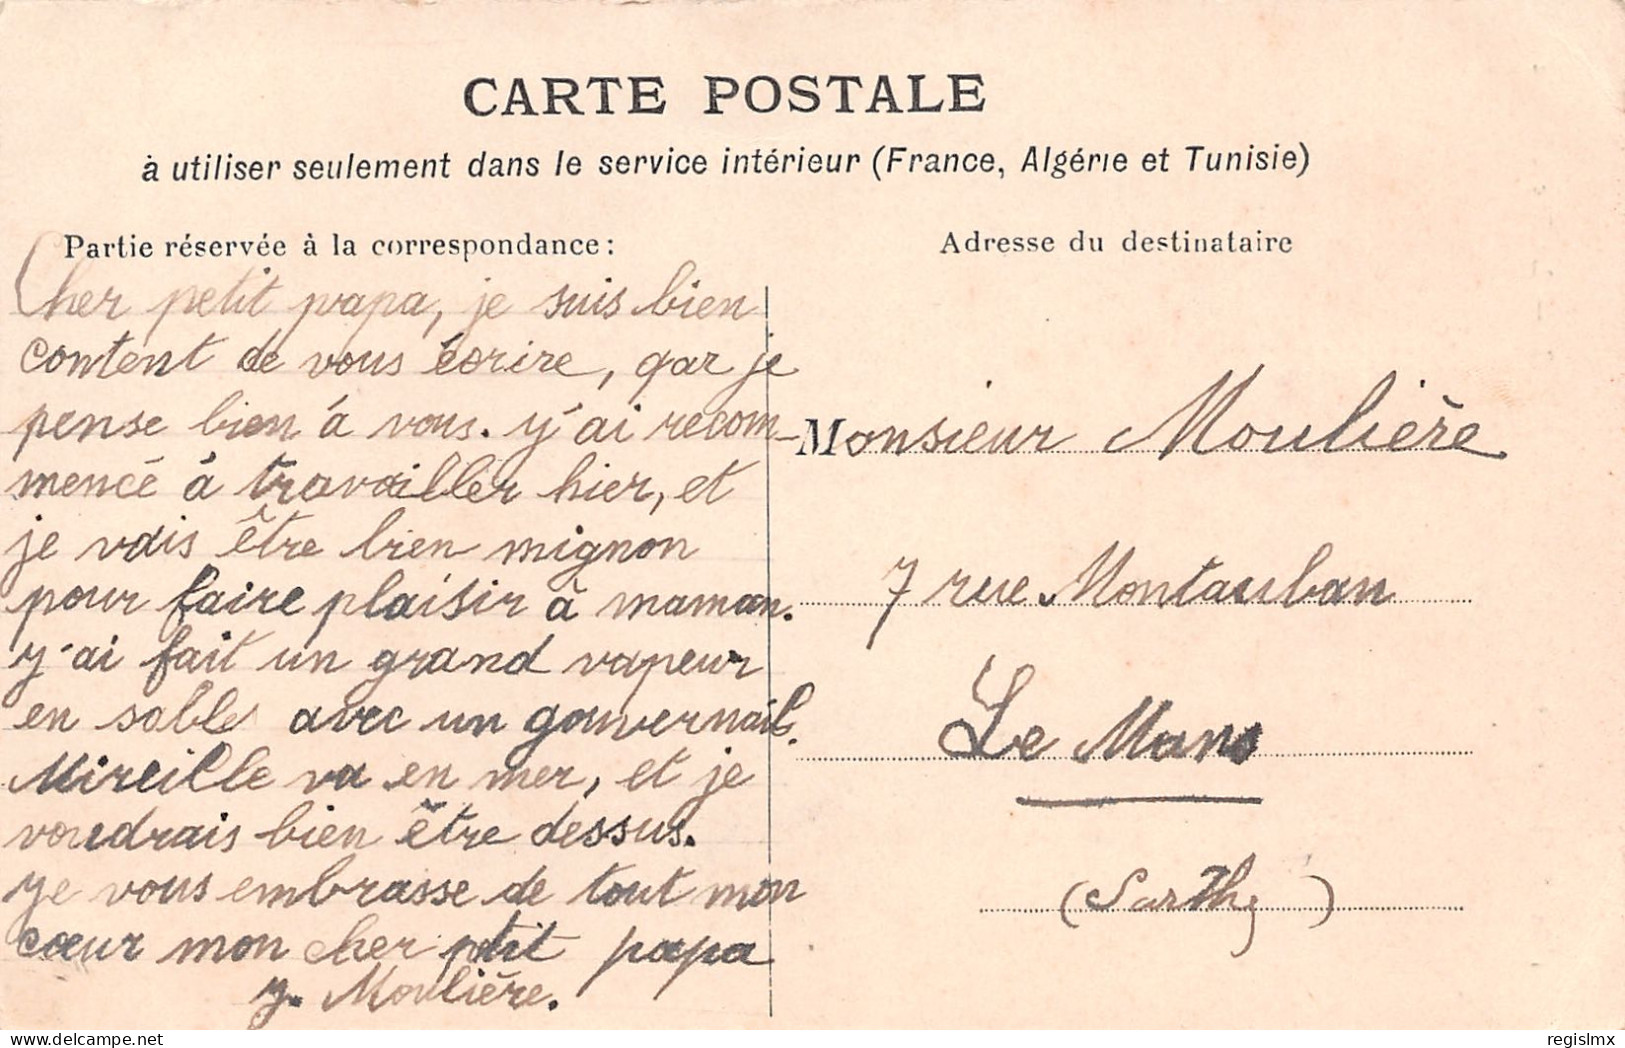 CARTE POSTALE
à utiliser seulement dans le service intérieur (France, Algérie et Tunisie)
Partie réservée à la correspondance:
Cher petit papa, je suis bien
content de vous écrire, qar je
pense bien à vous. J'ai recom-
mencé à travailler hier, et
je vais être bien mignon
pour faire plaisir à maman.
J'ai fait un grand vapeur
en sable avec un gouvernail.
Mireille va en mer, et je
voudrais bien être dessus.
Je vous embrasse de tout mon
cœur mon cher ptit papa
J. Moulière.
Adresse du destinataire
Monsieur Moulière
7 rue Montauban
Le Mans
(Sarthe)
delcampe.net
regislmx